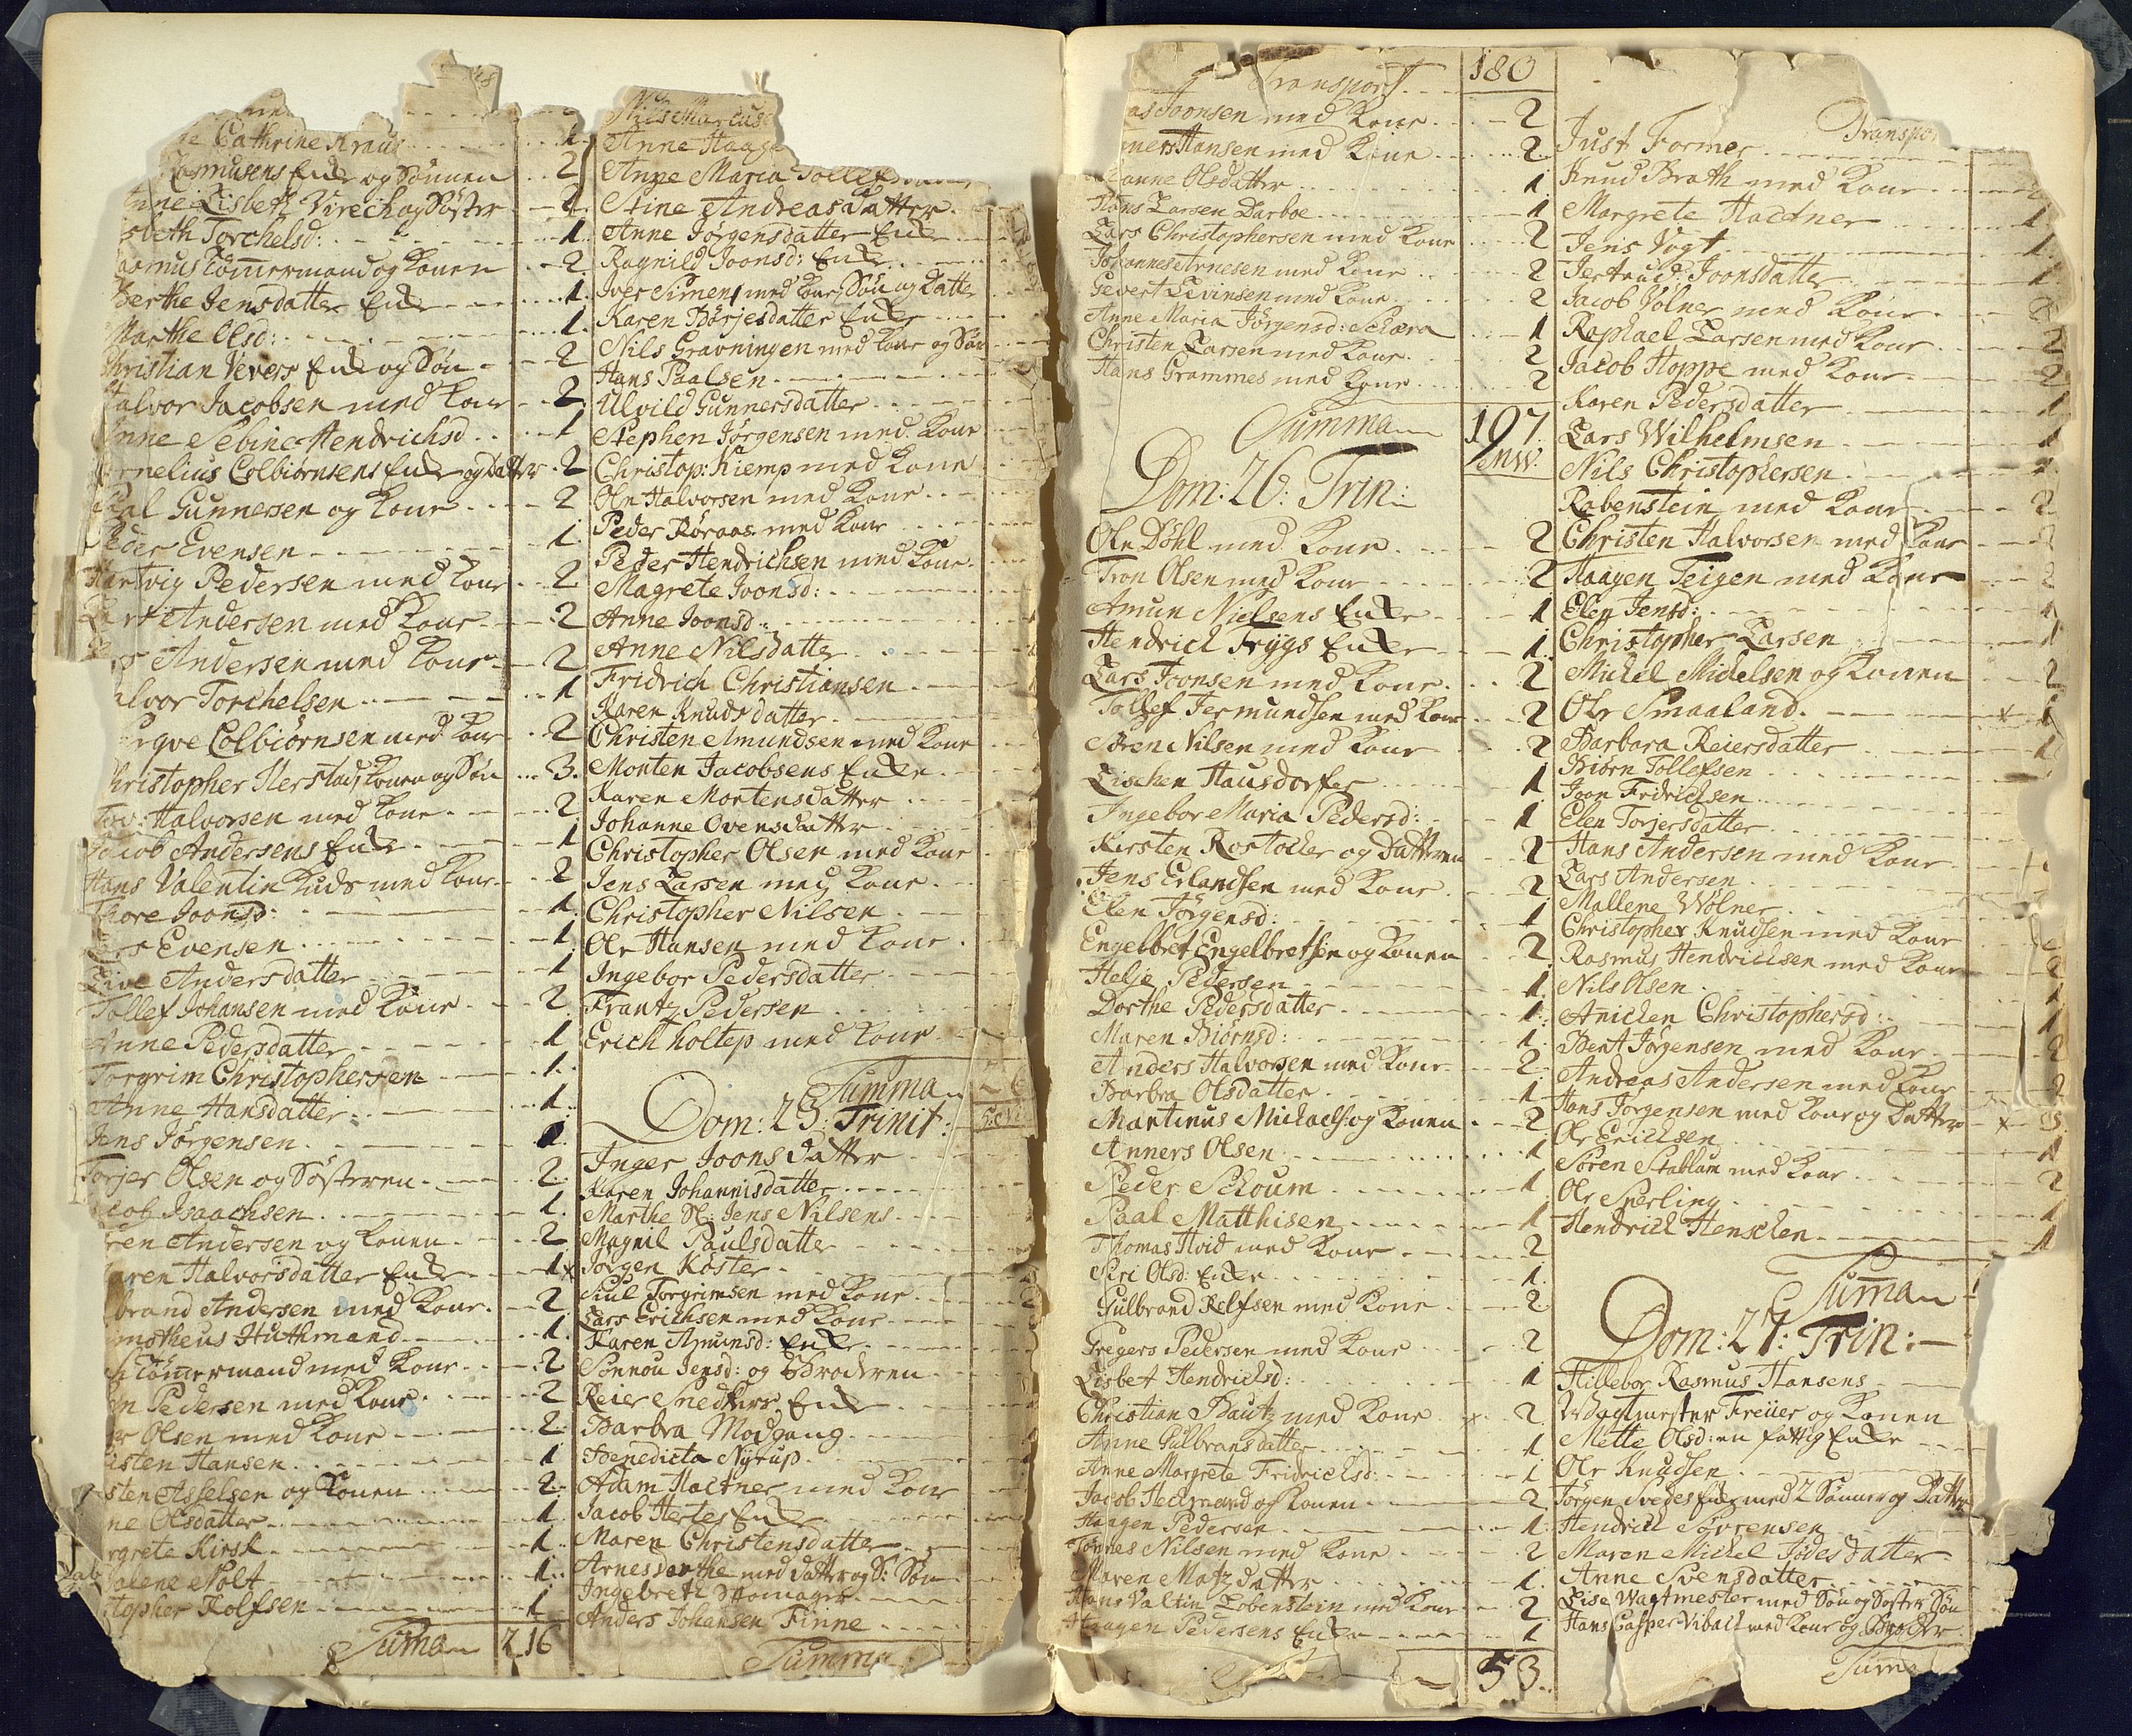 Cathrine Kraus 1
Rasmusens Enke og Sönnen 2
Anne Lisbeth Virech og Söster 2
Lisbeth Torchelsd: 1
Rasmus Tömmermand og Konen 2
Berthe Jensdatter Enke 1
Marthe Olsd: 1
Christian Vevers Enke og Sön 2
Halvor Jacobsen med Kone 2
Anne Sebine Hendrichsd 1
Cornelius Colbiörnsens Enke og Datter 2
Gunnersen og Kone 2
Peder Evensen 1
Hartvig Pedersen med Kone 2
Andersen med Kone 2
Andersen med Kone 2
Halvor Torchelsen 1
Colbiörnsen med Kone 2
Christopher Herstad, Konen og Sön 3.
Halvorsen med Kone 2
Jacob Andersens Enke 1
Hans Valentin Kuds med Kone 2
Thore Joonsd: 1
Evensen 1
Live Andersdatter 1
Tollef Johansen med Kone 2
Anne Pedersdatter 1
Torgrim Christophersen 1
Anne Hansdatter 1
Jens Jörgensen 1
Torjer Olsen og Sösteren 2
Jacob Isaachsen 1
Andersen og Konen 2
Karen Halvorsdatter Enke 1
Andersen med Kone 2
Huthmand 1
Tömmermand med Kone 2
Pedersen med Kone 2
Olsen med Kone 2
Hansen 1
Asselsen og Konen 2
Olsdatter 1
Kirsk 1
Nolt 1
Rolfsen 1
Summa 216
Nils Marcus
Anne Haag
Anne Maria Tollefsdatter
Stine Andreasdatter
Anne Jörgensdatter Enke
Ragnild Joonsd: Enke
Iver Simens med Kone, Sön og Datter
Karen Börjesdatter Enke
Nils Gravningen med Kone og Sön
Hans Paalsen
Ulvild Gunnersdatter
Stephen Jörgensen med Kone
Christop: Kiemp med Kone
Ole Halvorsen med Kone
Peder Röraas med Kone
Peder Hendrichsen med Kone
Magrete Joonsd:
Anne Joonsd:
Anne Nilsdatter
Fridrich Christiansen
Karen Knudsdatter
Christen Amundsen med Kone
Morten Jacobsens Enke
Karen Mortensdatter
Johanne Ovensdatter
Christopher Olsen med Kone
Jens Larsen med Kone
Christopher Nilsen
Ole Hansen med Kone
Ingebor Pedersdatter
Frantz Pedersen
Erich Holtep med Kone
Summa
Dom: 25: Trinit:
Inger Joonsdatter
Karen Johannisdatter
Marthe Sl: Jens Nilsens
Magnil Paulsdatter
x Jörgen Köster
Siul Torgrimsen med Kone 2
Lars Erichsen med Kone
Karen Amunsd: Enke
Sönnou Jensd: og Broderen
Reier Snedkers Enke
Barbra Modgang
Benedicta Nyrup
Adam Hactner med Kone
Jacob Hertes Enke
Maren Christensdatter
Arnes dorthe med datter og S: Sön
Ingebreth
Anders Johansen Finne
Summa
Transport 180
Joonsen med Kone 2
Hansen med Kone 2
Olsdatter 1
Hans Larsen Darboe 1
Lars Christophersen med Kone 2
Johannes Arnesen med Kone 2
Gevert Levinsen med Kone 2
Anne Maria Jörgensd: Schæra 1
Christen Larsen med Kone 2
Hans Grammes med Kone 2
Summa 197
Dom: 26: Trin:
Ole Döhl med Kone 2
Tron Olsen med Kone 2
Amun Nielsens Enke 1
Hendrich Trygs Enke 1
Lars Joonsen med Kone 2
Tollef Jermundsen med Kone 2
Sören Nilsen med Kone 2
Lischen Hausdorfer 1
Ingebor Maria Pedersd: 1
Kirsten Rostocker og Datteren 2
Jens Erlandsen med Kone 2
Elen Jörgensd: 1
Engelbret Engelbretsen og Konen 2
Helje Pedersen 1
Dorthe Pedersdatter 1
Maren Biörnsd: 1
Anders Halvorsen med Kone 2
Barbra Olsdatter 1
Martinus Michaels: og Konen 2
Anners Olsen 1
Peder Schoum 1
Paal Matthisen 1
Thomas Hvid med Kone 2
Siri Olsd: Enke 1
Gulbrand Rolfsen med Kone 2
Gregers Pedersen med Kone 2
Lisbet Hendrichsd: 1
Christian Bautz med Kone x 2
Anne Gulbransdatter 1
Anne Margrete Fridrichsd: 1
Jacob Heckmand og Konen 2
Haagen Pedersen 1
Tönnes Nilsen med Kone 2
Maren Matzdatter 1
Hans Valtin Lobenstein med Kone 2
Haagen Pedersens Enke 1
53
Transpor
Just Former
Knud Brath med Kone 2
Margrete Hactner 1
Jens Vogt 1
Jertrud Joonsdatter 1
Jacob Völner med Kone 2
Raphael Larsen med Kone 2
Jacob Hoppe med Kone 2
Karen Pedersdatter 1
Lars Wilhelmsen 1
Nils Christophersen 1
Rabenstein med Kone 2
Christen Halvorsen med Kone 2
Haagen Teigen med Kone 2
Elen Jensd: 1
Christopher Larsen 1
Michel Michelsen og Konen 2
Ole Smaaland x 1
Barbara Reiersdatter 1
Biörn Tollefsen
Joon Fridrichsen
Elen Torjersdatter
Hans Andersen med Kone
Lars Andersen
Mallene Wölner
Christopher Knudsen med Kone
Rasmus Hendrichsen med Kone 2
Nils Olsen 1
Anichen Christophersd: 1
Bent Jörgensen med Kone 2
Andreas Andersen med Kone 2
Hans Jörgensen med Kone og Datter x 3
Ole Erichsen 1
Sören Stablum med Kone 2
Ole Sperling 1
Hendrich Henschen 1
Summa
Dom: 27: Trin:
Hillebor Rasmus Hansens
Wagtmester Freiier og Konen
Mette Olsd: en fattig Enke
Ole Knudsen
Jörgen Svedes Enke med 2 Sönner og Datter
Hendrich Sörrensen
Maren Michel Jödes datter
Anne Svensdatter
Lise Wagtmester med Sön og Söster Sön
Hans Casper Vibach med Kone og Broder
Summa